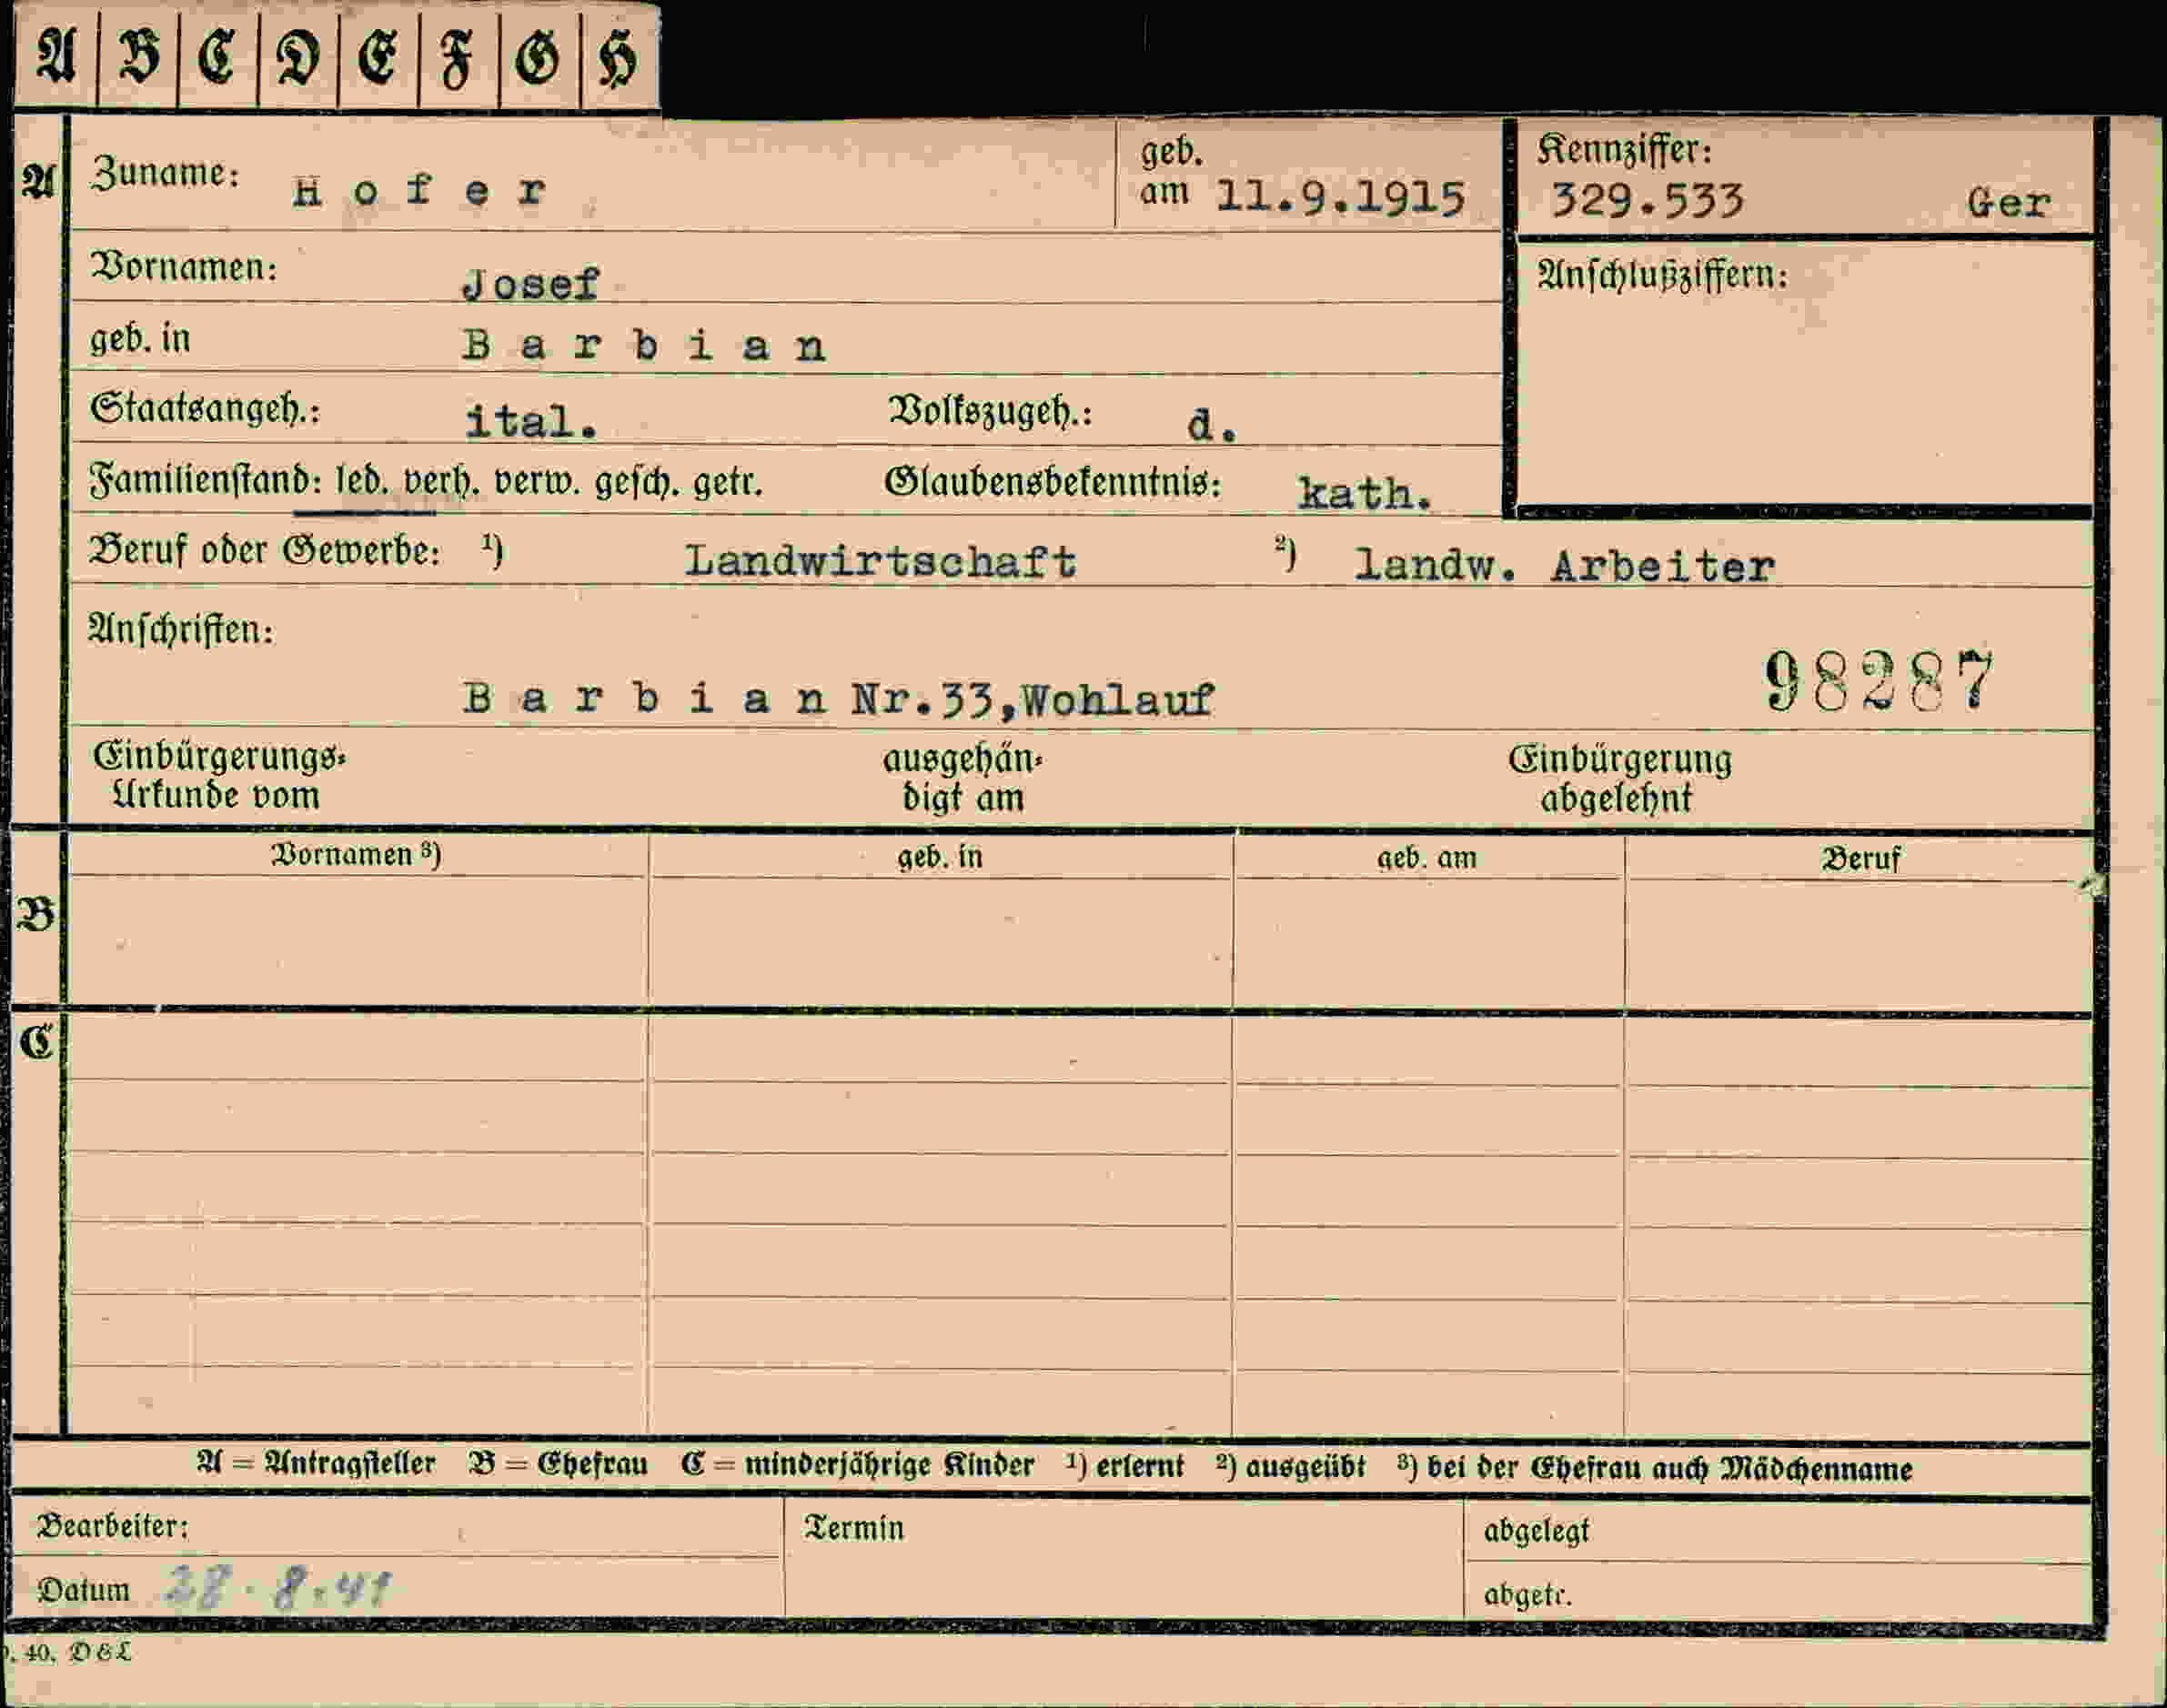 A B C D E F G H
A Zuname: H o f e r geb. am 11.9.1915 Kennziffer: 329.533 Ger
Vornamen: Josef Anschlußziffern:
geb. in B a r b i a n
Staatsangeh.: ital. Volkszugeh.: d.
Familienstand: led. verh. verw. gesch. getr. Glaubensbekenntnis: kath.
Beruf oder Gewerbe: ¹) Landwirtschaft ²) landw. Arbeiter
Anschriften:
98287
B a r b i a n Nr.33,Wohlauf
Einbürgerungs- ausgehän- Einbürgerung
Urkunde vom digt am abgelehnt
Vornamen ³) geb. in geb. am Beruf
B
C
A = Antragsteller B = Ehefrau C = minderjährige Kinder ¹) erlernt ²) ausgeübt ³) bei der Ehefrau auch Mädchenname
Bearbeiter: Termin abgelegt
Datum 28.8.41 abgetr.
40. D&L